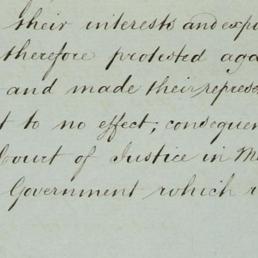 their interests and expo
therefore protested aga
and made their represe
t to no effect; consequen
Court of Justice in M
Government which